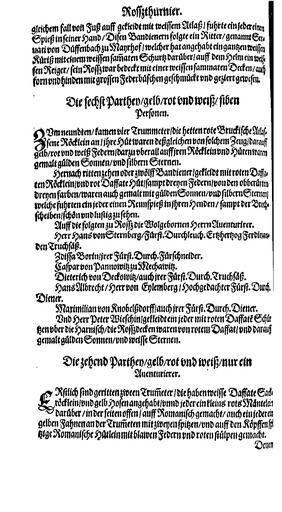 Rossthurnier.
gleichem fall von Fuß auff gekleid mit weissem Atlaß / fuhrte ein jeder einen
Spieß in seiner Hand / Disen Bandierern folgte ein Ritter / genannt Ste-
uati von Düffenbach zu Mayrhof / welcher hat angehabt ein gantzen weissen
Küriß mit einem weissen samaten Schurtz darüber / auff dem Helm ein weis-
sen Reiger / sein Roß war bedeckt mit einer weissen sammaten Decken / auch
forn und hinden mit grossen Federbüschen geschmückt und geziert gewesen.
Die sechst Parthey / gelb / rot vnd weiß / siben
Personen.
Vm neundten / kamen vier Trummeter / die hetten rote Bruckische Atlas-
sene Röcklein an / ihre Hüt waren deßgleichen von solchem Zeug / darauff
gelb / rot vnd weiß Federn / darzu vberall auff iren Röcklein vnd Hüten waren
gemalt gülden Sonnen / vnd silbern Sternen.
Hernach ritten zehen oder zwölff Bandierer / gekleidet mit roten Daffa-
ten Röcklein / vnd rot Daffate Hüt / sampt dreyen Federn / von den obberürten
dreyen farben / waren auch gemalt mit gülden Sonnen / vnd silbern Sternen /
welche fuhrten ein jeder einen Rennspieß in ihren Henden / sampt der Bech-
scheiben / schön vnd lustig zu sehen.
Auff die folgten zu Roß die Wolgebornen Herrn Auenturirer.
Herr Hans von Sternberg / Fürst. Durchleuch. Ertzhertzog Ferdinan-
den Truchsäß.
Zdißla Borin / irer Fürst. Durch. Fürschneider.
Caspar von Pannowitz zu Mechawitz.
Dieterich von Deckowitz / auch irer Fürst. Durch. Truchsäß.
Hans Albrecht / Herr von Eylemberg / Hochgedachter Fürst. Durch.
Diener.
Maximilian von Knobelßdorff / auch irer Fürst. Durch. Diener.
Vnd Herr Peter Wleschin / gekleidet ein jeder mit roten Daffat Schü-
tzen vber die Harnisch / die Roßdecken waren von rotem Daffat / vnd darauff
gemalt gülden Sonnen / vnd weisse Sternen.
Die zehend Parthey / gelb / rot vnd weiß / nur ein
Auenturierer.
ERstlich sind geritten zween Trummeter / die haben weisse Daffate
röcklein / vnd gelb Hosen angehabt / vnnd jeder ein kleins rots Mäntelein
darüber / in der seiten offen / auff Romanisch gemacht / auch ein jeder ein
gelben Fahnen an der Trummeten mit zweyen spitzen / vnd auff den Köpffen
tzige Romanische Hütlein mit blawen Federn vnd roten stülpen gemacht.